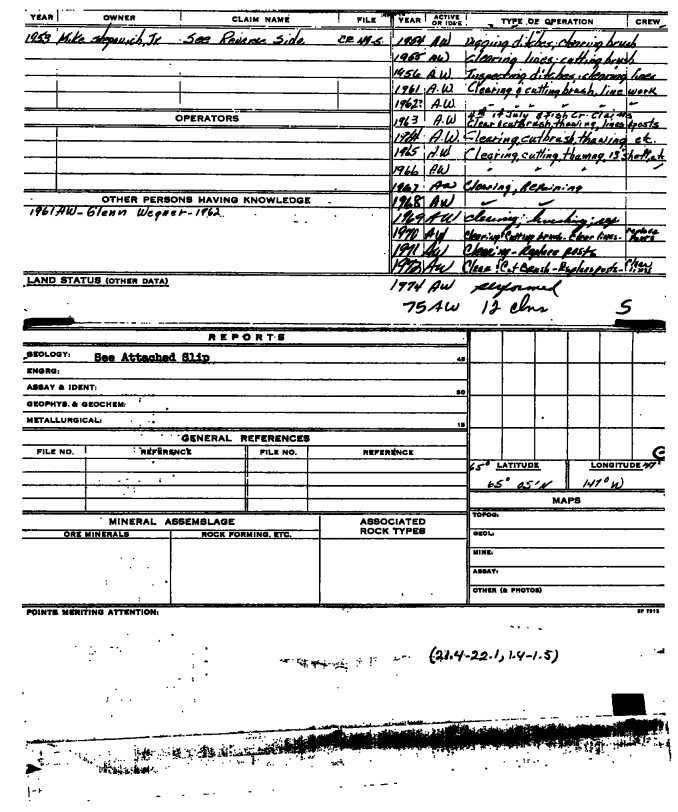 YEAR OWNER CLAIM NAME FILE YEAR ACTIVE OR IDLE TYPE OF OPERATION CREW
1953 Mike Stepovich, Jr. See Reverse Side. 1954 AW Digging ditches, clearing brush
1955 AW Clearing lines, cutting brush
1956 A.W. Inspecting ditches, clearing lines
1961 A.W. Clearing & cutting brush, line work
1962? A.W. " " " "
OPERATORS
1963 A.W. Clear & cut brush, thawing, lines & posts
1964 A.W. Clearing, cut brash, thawing etc.
1965 AW Clearing, cutting, thawing, 13' shaft, etc
1966 AW " " "
1967 AW Clearing, Repairing
OTHER PERSONS HAVING KNOWLEDGE
1968 AW " "
1961 AW - Glenn Wegner - 1962
1969 AW clearing, brushing,
1970 AW Clearing! Cutting brush - Clear lines - replace posts
1971 AW Clearing - Replace posts
1972 AW Clear! Cut Brush - Replace posts - Clear lines
LAND STATUS (OTHER DATA)
1974 AW performed
75 AW 12 clms S
REPORTS
GEOLOGY: See Attached Slip 45
ENGRG:
ASSAY & IDENT: 30
GEOPHYS. & GEOCHEM:
METALLURGICAL: 15
GENERAL REFERENCES
FILE NO. REFERENCE FILE NO. REFERENCE
65° LATITUDE LONGITUDE 147°
65° 05' N 147° W)
MAPS
MINERAL ASSEMBLAGE ASSOCIATED ROCK TYPES
TOPOG:
ORE MINERALS ROCK FORMING, ETC.
GEOL:
MINE:
ASSAY:
OTHER (& PHOTOS)
POINTS MERITING ATTENTION:
(21.4-22.1, 1.4-1.5)